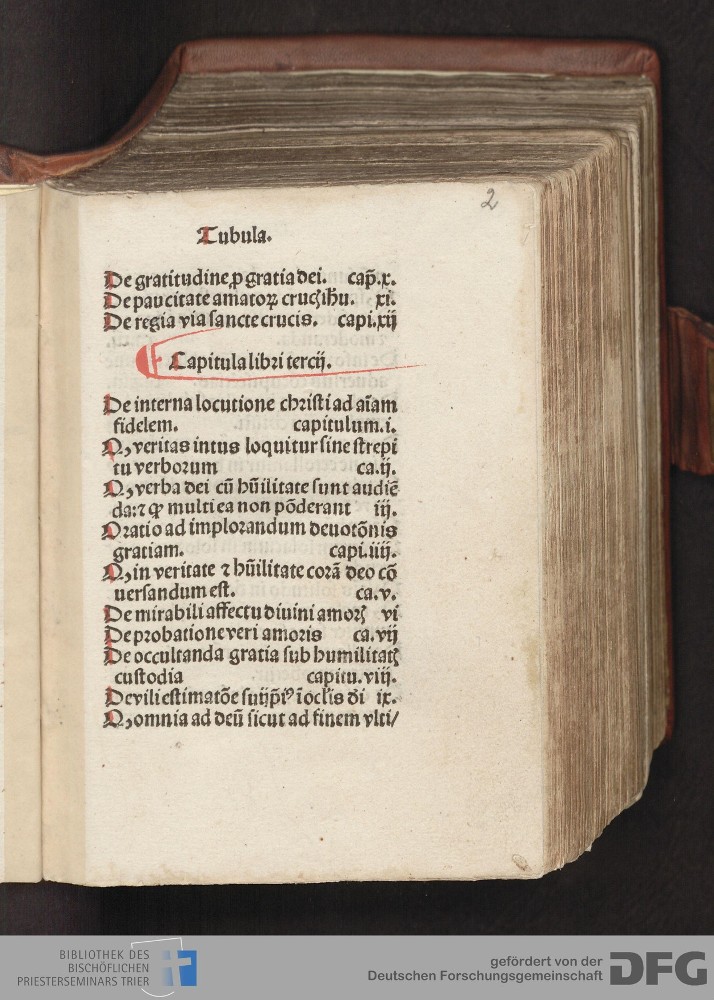 2
Tubula.
De gratitudine ꝓ gratia dei. cap̃.x.
De paucitate amatoꝝ crucꝭ ih̃u. xi.
De regia via sancte crucis. capi.xij
Capitula libri tercij.
De interna locutione christi ad aĩam
fidelem. capitulum.i.
Q, veritas intus loquitur sine strepi
tu verborum ca.ij.
Q, verba dei cũ hũilitate sunt audiẽ
da: ⁊ ꝙ multi ea non põderant iij.
Oratio ad implorandum deuotõnis
gratiam. capi.iiij.
Q, in veritate ⁊ hũilitate corã deo cõ
uersandum est. ca.v.
De mirabili affectu diuini amorꝭ vi
De probatione veri amoris ca.vij
De occultanda gratia sub humilitatꝭ
custodia capitu.viij.
De vili estimatõe suijp̃iꝰ ĩ oclis di ix.
Q, omnia ad deũ sicut ad finem vlti/
BIBLIOTHEK DES
BISCHÖFLICHEN
PRIESTERSEMINARS TRIER
gefördert von der
Deutschen Forschungsgemeinschaft
DFG